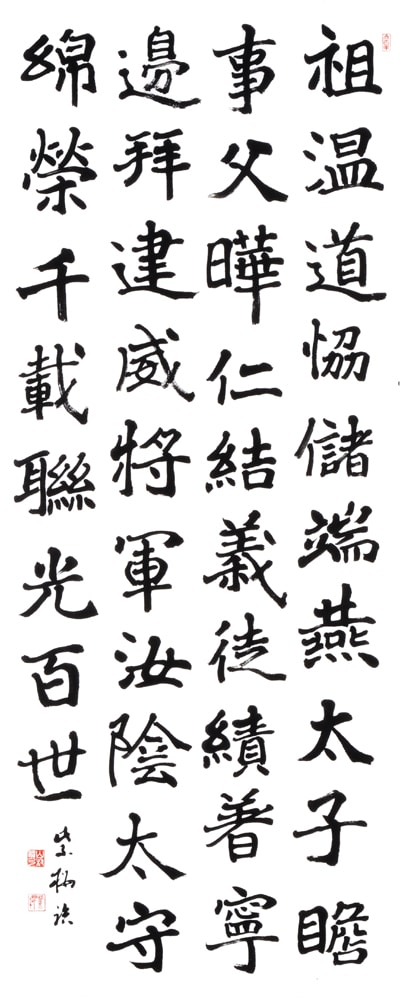 祖温道恊儲端燕太子瞻
事父曄仁結義徒績著寧
邊拜建威将軍汝陰太守
綿榮千載聯光百世